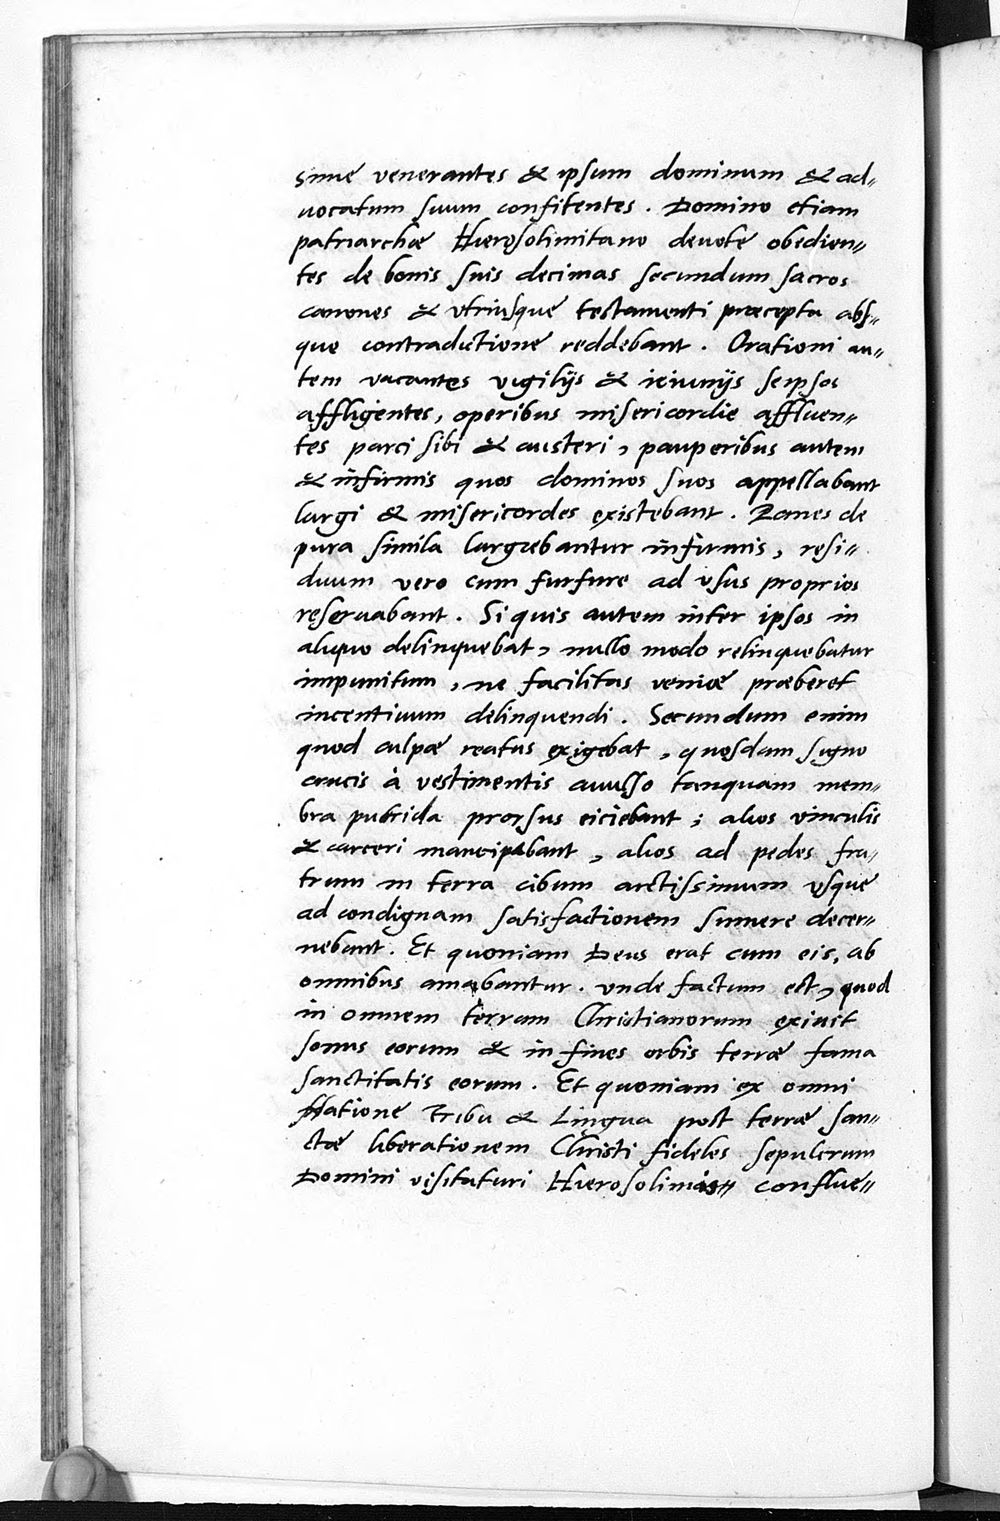 simè venerantes & ipsum dominum & ad-
uocatum suum confitentes. Domino etiam
patriarchæ Hierosolimitano deuotè obedien-
tes de bonis suis decimas secundum sacros
canones & vtriusque testamenti præcepta abs-
que contradictione reddebant. Orationi au-
tem vacantes vigilijs & ieiunijs seipsos
affligentes, operibus misericordie affluen-
tes parci sibi & austeri, pauperibus autem
& infirmis quos dominos suos appellabant
largi & misericordes existebant. Panes de
pura simila largiebantur infirmis, resi-
duum vero cum furfure ad vsus proprios
reseruabant. Si quis autem inter ipsos in
aliquo delinquebat, nullo modo relinquebatur
impunitum, ne facilitas veniæ præberet
incentiuum delinquendi. Secundum enim
quod culpæ reatus exigebat, quosdam signo
crucis à vestimentis auulso tanquam mem-
bra putrida prorsus eiciebant; alios vinculis
& carceri mancipabant, alios ad pedes fra-
trum in terra cibum arctissimum vsque
ad condignam satisfactionem sumere decer-
nebant. Et quoniam Deus erat cum eis, ab
omnibus amabantur. vnde factum est, quod
in omnem terram Christianorum exiuit
sonus eorum & in fines orbis terræ fama
sanctitatis eorum. Et quoniam ex omni
Natione Tribu & Lingua post terræ san-
ctæ liberationem Christi fideles sepulcrum
Domini visitaturi Hierosolimis conflue-